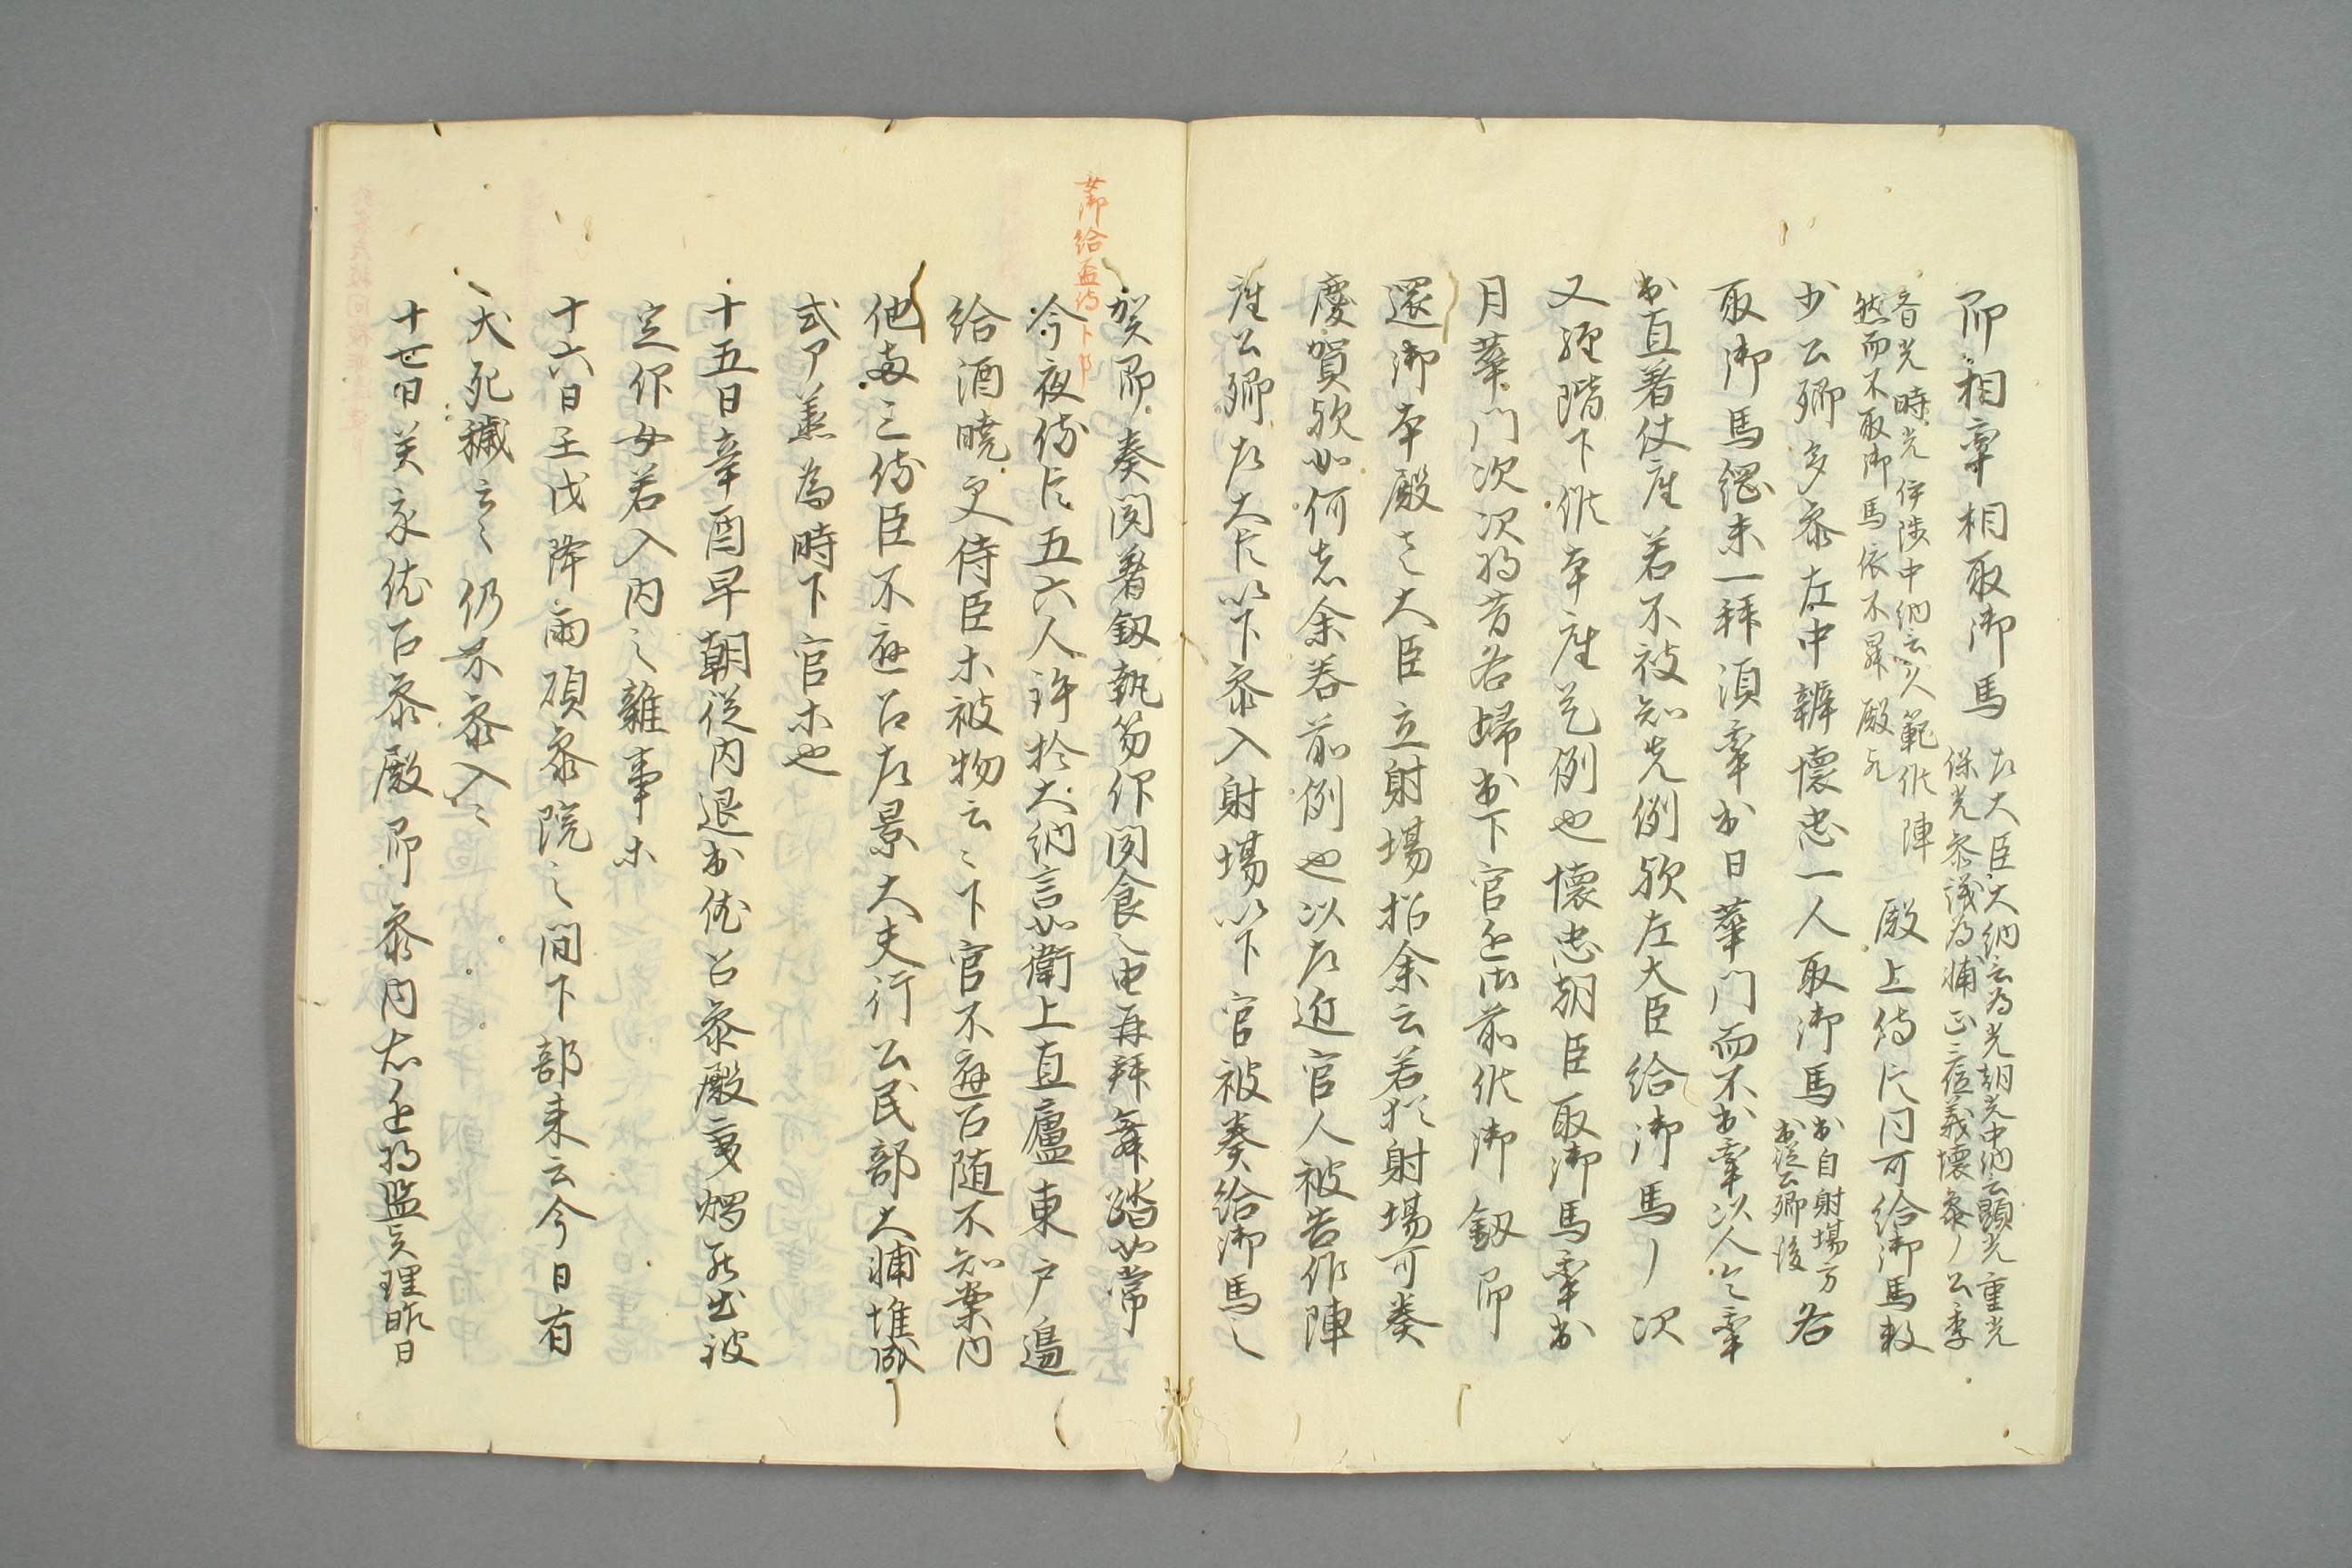 即相牽相取御馬
左大臣大納言為光朝光中納言顕光重光
保光参議為輔正三位義懐参丶公季
斉光時光伊陟中納言文範候陣
然而不取御馬依不昇殿耳
殿上侍臣同可給御馬敕
少公卿多参左中辨懐忠一人取御馬
出自射場方
出従公卿後
各
取御馬綱末一拝須牽出日華門而不出牽以人令牽
出直着仗座若不被知先例歟左大臣給御馬丶次
又経階下候本座是例也懐忠朝臣取御馬牽出
月華門次次将等各帰出下官進御前候御釼即
還御本殿之大臣立射場招余云若於射場可奏
慶賀歟如何者余答前例也以左近官人被告作陣
座公卿左大臣以下参入射場以下官被奏給御馬之
女御給盃侍下部
賀即奏聞着釼執笏仰聞食之由再拝舞踏如常
今夜侍臣五六人許於大納言如衛上直廬東戸邊
給酒曉更侍臣等被物云々下官不遊召随不知案内
他両三侍臣不遊召左景大夫行公民部大輔堆成
式丁善為時下官等也
十五日辛酉早朝従内退出依召参殿東燭罷出被
定仰女若入内之雜事等
十六日壬戌降雨頃参院之間下部来云今日有
犬死穢云々仍不参入々
十七日癸亥依召参殿即参内右近将監真理昨日